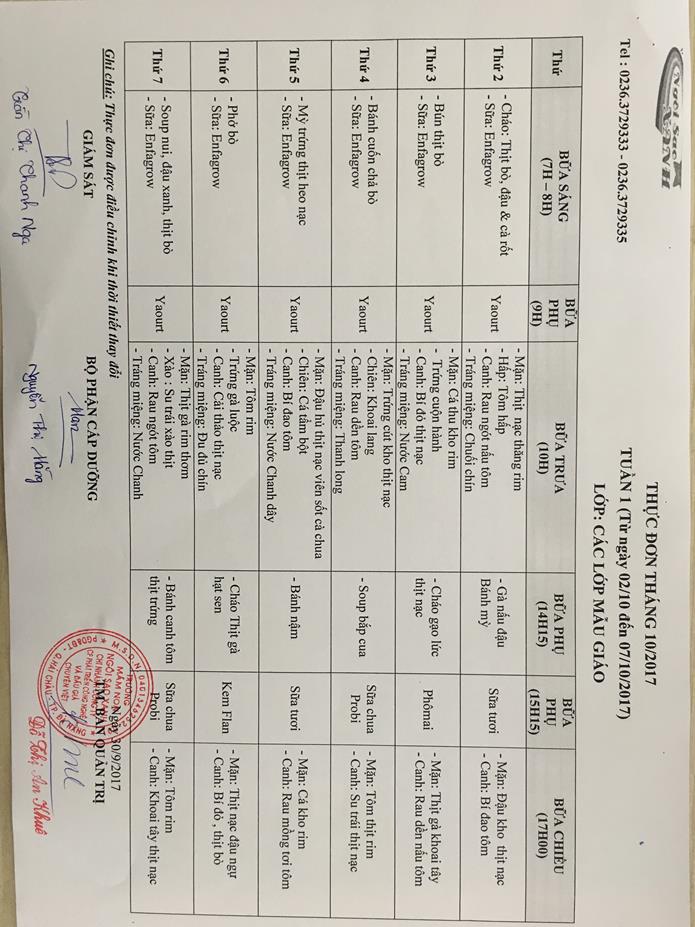 Ngôi Sao XANH
Tel : 0236.3729333 - 0236.3729335
THỰC ĐƠN THÁNG 10/2017
TUẦN 1 (Từ ngày 02/10 đến 07/10/2017)
LỚP: CÁC LỚP MẪU GIÁO
Thứ
BỮA SÁNG
(7H – 8H)
BỮA
PHỤ
(9H)
BỮA TRƯA
(10H)
BỮA PHỤ
(14H15)
BỮA
PHỤ
(15H15)
BỮA CHIỀU
(17H00)
Thứ 2
- Cháo: Thịt bò, đậu & cà rốt
- Sữa: Enfagrow
Yaourt
- Mặn: Thịt nạc thăng rim
- Hấp: Tôm hấp
- Canh: Rau ngót nấu tôm
- Tráng miệng: Chuối chín
- Gà nấu đậu
Bánh mỳ
Sữa tươi
- Mặn: Đậu kho thịt nạc
- Canh: Bí đao tôm
Thứ 3
- Bún thịt bò
- Sữa: Enfagrow
Yaourt
- Mặn: Cá thu kho rim
- Trứng cuộn hành
- Canh: Bí đỏ thịt nạc
- Tráng miệng: Nước Cam
- Cháo gạo lức
thịt nạc
Phômai
- Mặn: Thịt gà khoai tây
- Canh: Rau dền nấu tôm
Thứ 4
- Bánh cuốn chả bò
- Sữa: Enfagrow
Yaourt
- Mặn: Trứng cút kho thịt nạc
- Chiên: Khoai lang
- Canh: Rau dền tôm
- Tráng miệng: Thanh long
- Soup bắp cua
Sữa chua
Probi
- Mặn: Tôm thịt rim
- Canh: Su trái thịt nạc
Thứ 5
- Mỳ trứng thịt heo nạc
- Sữa: Enfagrow
Yaourt
- Mặn: Đậu hủ thịt nạc viên sốt cà chua
- Chiên: Cá tẩm bột
- Canh: Bí đao tôm
- Tráng miệng: Nước Chanh dây
- Bánh nậm
Sữa tươi
- Mặn: Cá kho rim
- Canh: Rau mồng tơi tôm
Thứ 6
- Phở bò
- Sữa: Enfagrow
Yaourt
- Mặn: Tôm rim
- Trứng gà luộc
- Canh: Cải thảo thịt nạc
- Tráng miệng: Đu đủ chín
- Cháo Thịt gà
hạt sen
Kem Flan
- Mặn: Thịt nạc đậu ngự
- Canh: Bí đỏ , thịt bò
Thứ 7
- Soup nui, đậu xanh, thịt bò
- Sữa: Enfagrow
Yaourt
- Mặn: Thịt gà rim thơm
- Xào : Su trái xào thịt
- Canh: Rau ngót tôm
- Tráng miệng: Nước Chanh
- Bánh canh tôm
thịt trứng
Sữa chua
Probi
- Mặn: Tôm rim
- Canh: Khoai tây thịt nạc
Ghi chú: Thực đơn được điều chỉnh khi thời thiết thay đổi
Ngày 30/9/2017
GIÁM SÁT
BỘ PHẬN CẤP DƯỠNG
TM. BAN QUẢN TRỊ
TRƯỜNG
MẦM NON
NGÔI SAO XANH
Nguyễn Thị Hằng
Đỗ Thị An Khuê